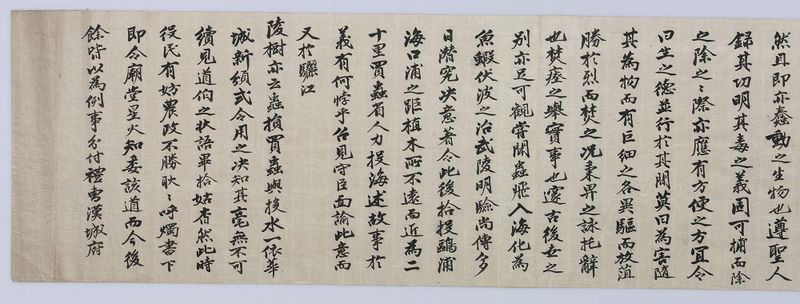 然且即亦蠢動之生物也遵聖人
錄其功明其毒之義固可捕而除
之除之〻際亦應有方便之方宜令
曰生之德並行於其間莫曰為害隨
其為物而有巨細之各異驅而放菹
勝於烈而焚之况秉畀之詠托辭
也焚瘞之舉實事也邃古後世之
別亦足可觀嘗聞蟲飛入海化為
魚鰕伏波之治武陵明驗尚傳多
日潛究决意著令此後拾投鷗浦
海口浦之距植木所不遠而近為二
十里買蟲有人力投海述故事於
義有何悖乎召見守臣面諭此意而
又於驪江
陵樹亦云蟲損買蟲與投水一依華
城新頒式令用之决知其毫無不可
續見道伯之狀語畢拾姑者然此時
役民有妨農政不勝耿〻呼燭書下
即令廟堂星火知委該道而今後
餘皆以為例事分付禮曹漢城府